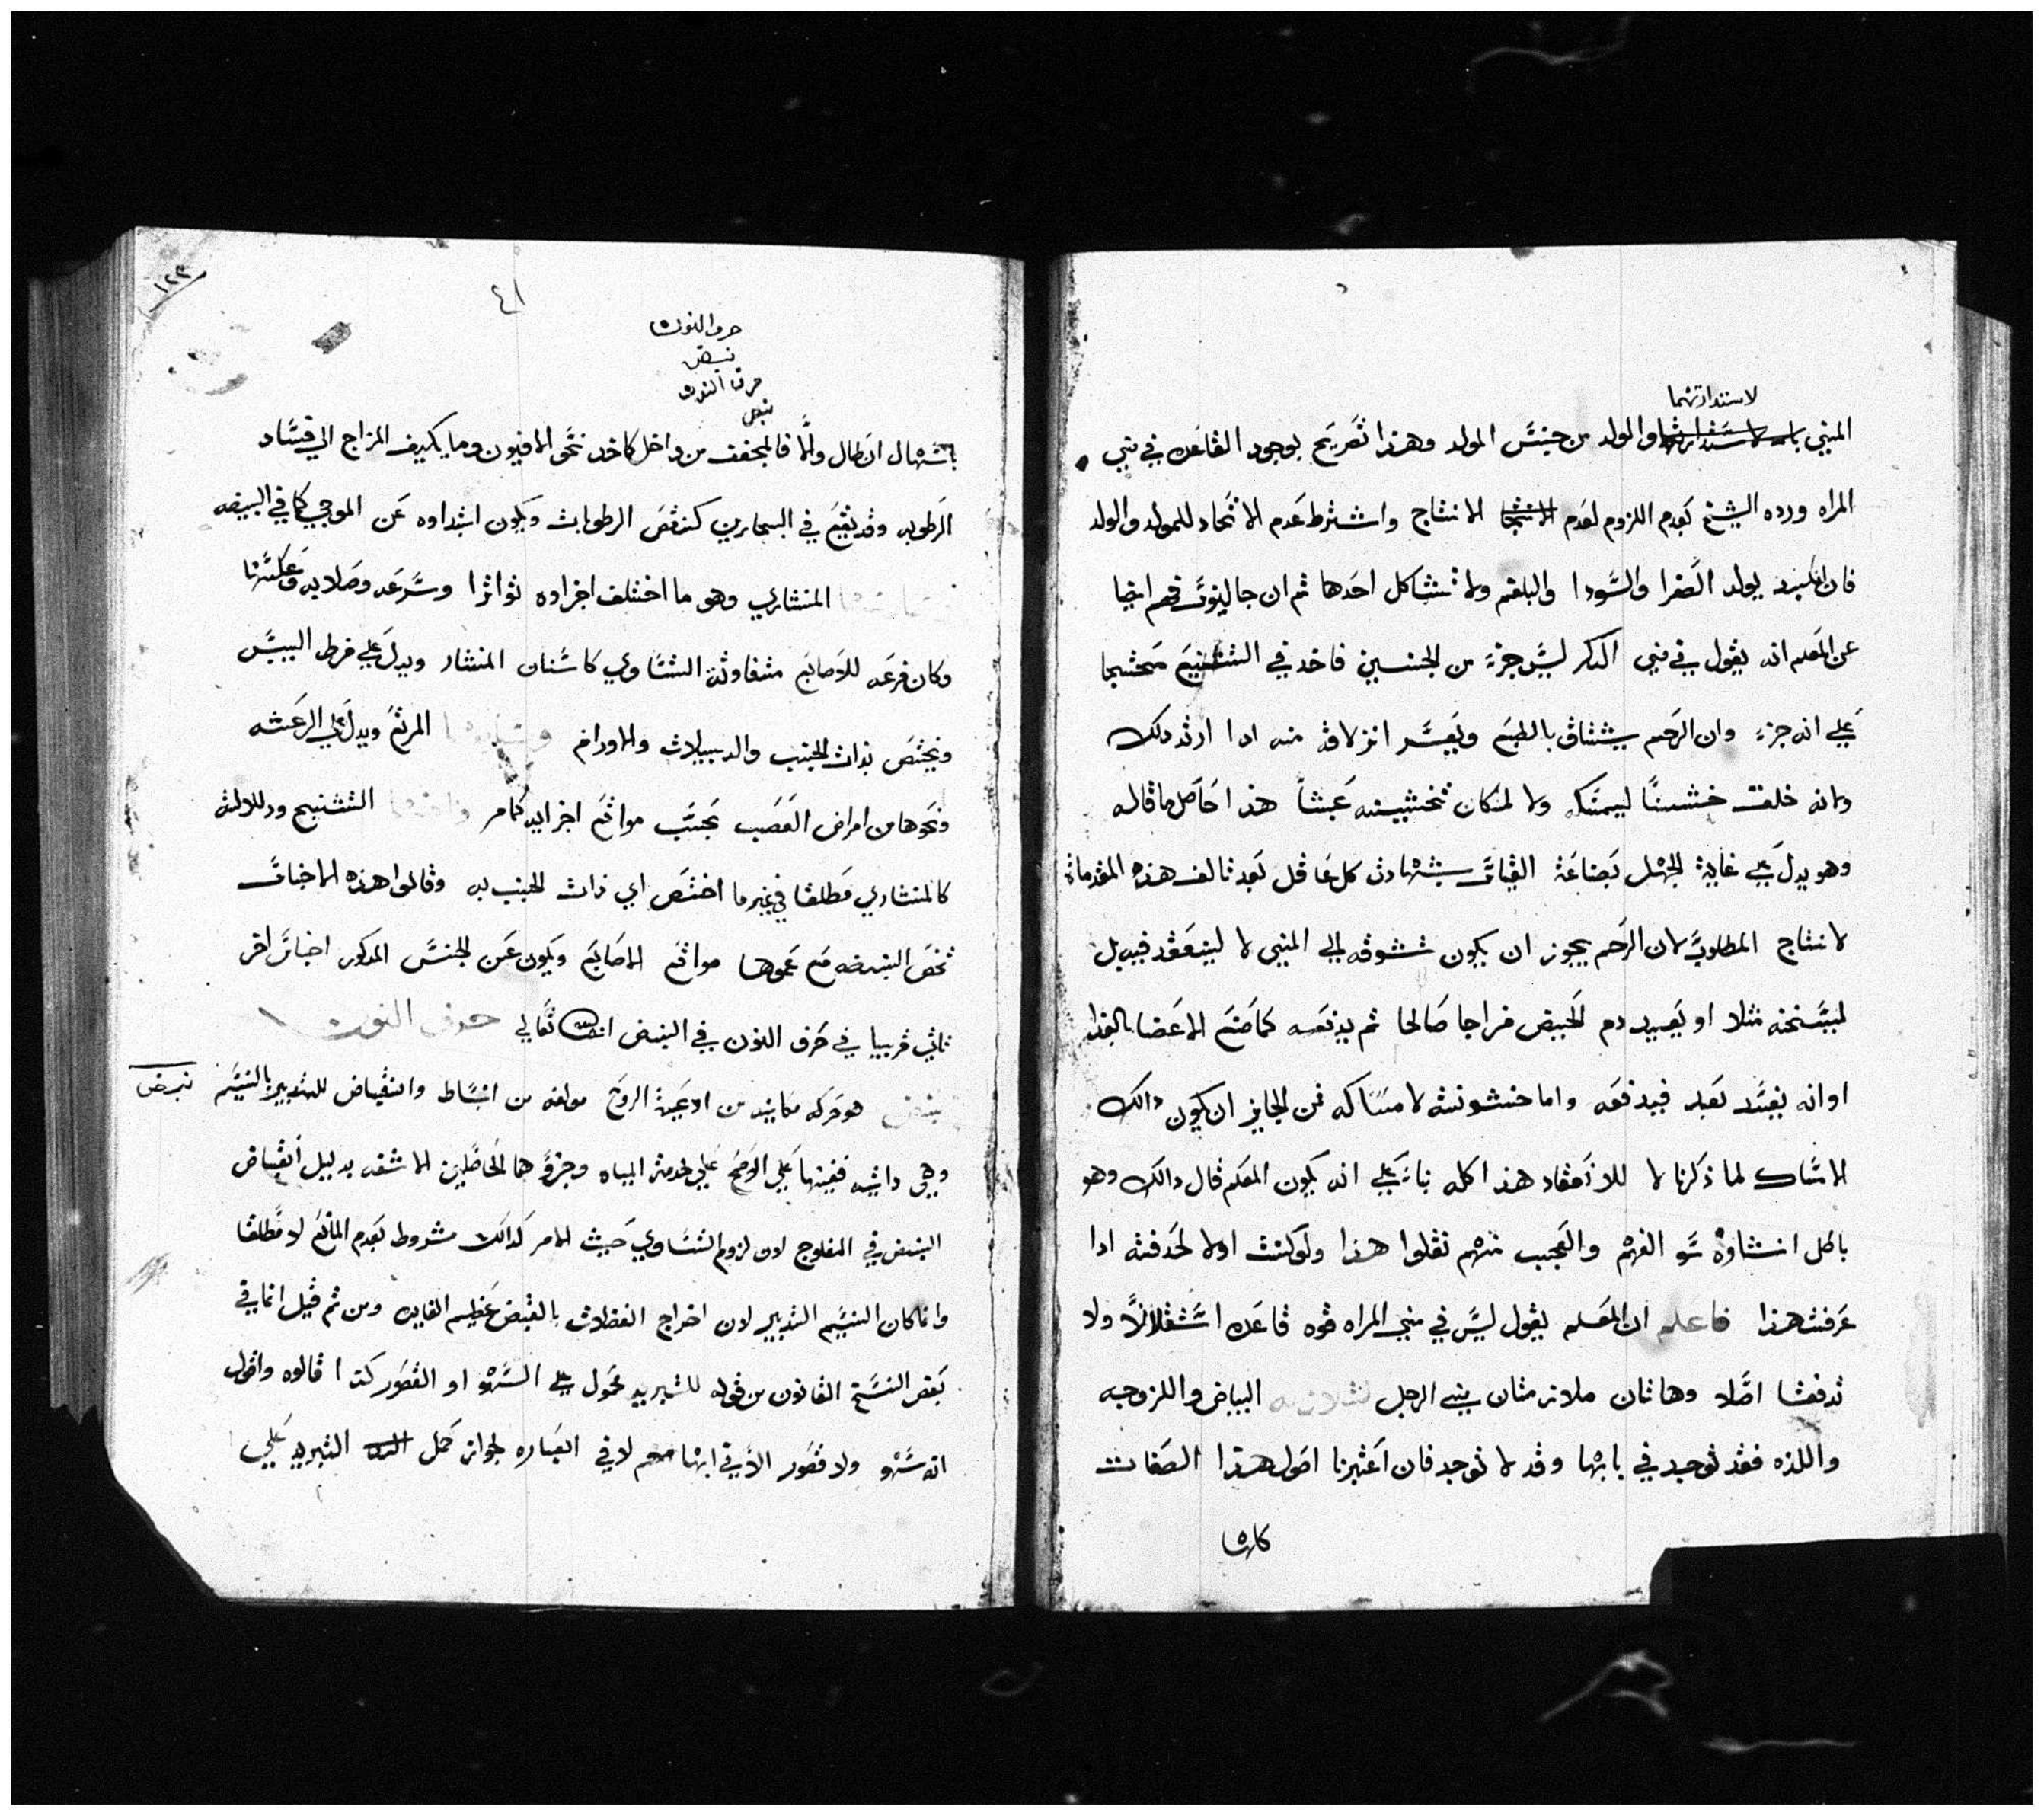 لاستدارتهما
المني باله لاستدارتهما والولد من جنس المولد وهذا تصريح بوجود القاعده في مني
المراه ورده الشيخ بعدم اللزوم لعدم الانتجا الانتاج واشترط عدم الاتحاد للمولد والولد
فان الكبد يولد الصفرا والسودا والبلغم ولا تشاكل احدها ثم ان جالينوس فهم ايضا
عن المعلم انه يقول في مني الذكر ليس جزء من الجنين فاخد في التشنيع محتجا
علي انه جزء وان الرحم يشتاق بالطبع ويعسر انزلاقه منه ادا اردت دلك
وانه خلقت خشنا ليمسكه ولا لكان تخشينه عبثا هذا حاصل ما قاله
وهو يدل علي غاية الجهل بصناعة القياس بشهادت كل عاقل بعد تالف هذه المقدمات
لانتاج المطلوب لان الرحم يجوز ان يكون تشوقه الي المني لا لينعقد فيه بل
ليسخنه مثلا او يصير دم الحيض مزاجا صالحا ثم يدفعه كما صنع الاعضا بالغدا
اوانه يفسد بعد فيدفعه واما خشونته لامساكه فمن الجايز ان يكون دالك
الامساك لما ذكرنا لا للانعقاد هذا كله بناء علي انه يكون المعلم قال دالك وهو
باطل انشاوه سو الفهم والعجب منهم نقلوا هذا ولو كنت اولا لحدفته ادا
عرفت هذا فاعلم ان المعلم يقول ليس في مني المراه قوه قاعده استقلالا ولا
تدفقا اصلا وهاتان ملازمتان مني الرجل البياض واللزوجه
واللذه فقد توجد في بابها وقد لا توجد فان اعتبرنا اصول هذا الصفات
كان
١٢٣
٤١
حرف النون
نبض
حرف النون
نبض
باسهال ان طال والا فالمجفف من داخل كاخد نحو الافيون وما يكيف المزاج الي فساد
الرطوبه وقد يقع في البحارين كنقص الرطوبات ويكون ابتداوه عن الموجي كما في البيضه
المنشاري وهو ما اختلف اجزاوه تواترا وسرعه وصلابه وعكسها
وكان قرعه للاصابع متفاوتة التساوي كاسنان المنشار ويدل علي فرط اليبس
ويختص بذات الجنب والدبيلات والاورام المرتع ويدل علي الرعشه
ونحوها من امراض العصب بحسب مواقع اجزايه كما مر التشنج ودلالته
كالمنشاري مطلقا في غير ما اختص اي ذات الجنب به وقالوا هذه الاجناس
تخص النبض مع عمومها مواقع الاصابع ويكون عن الجنس المدكور اجناس اخر
تاتي قريبا في حرف النون في النبض انشالله تعالي حرف النون
نبض هو حركه مكانيه من اوعية الروح مولفه من انبساط وانقباض للتدبير بالنسيم نبض
وهي داتيه فيها علي الاوضح علي خدمة المياه وجزوها الحاصلين الاشفه بدليل انقباض
النبض في المفلوج لان لزوم التساوي حيث الامر كدالك مشروط بعدم المانع لا مطلقا
وانما كان النسيم التدبير لان اخراج الفضلات بالقبض عظيم الفايده ومن ثم قيل انما في
بعض النسخ القانون من قوله للتبريد محمول علي السهو او القصور كدا قالوه واقول
انه سهو ولا قصور الا في لا في العباره لجواز حمل التبريد علي